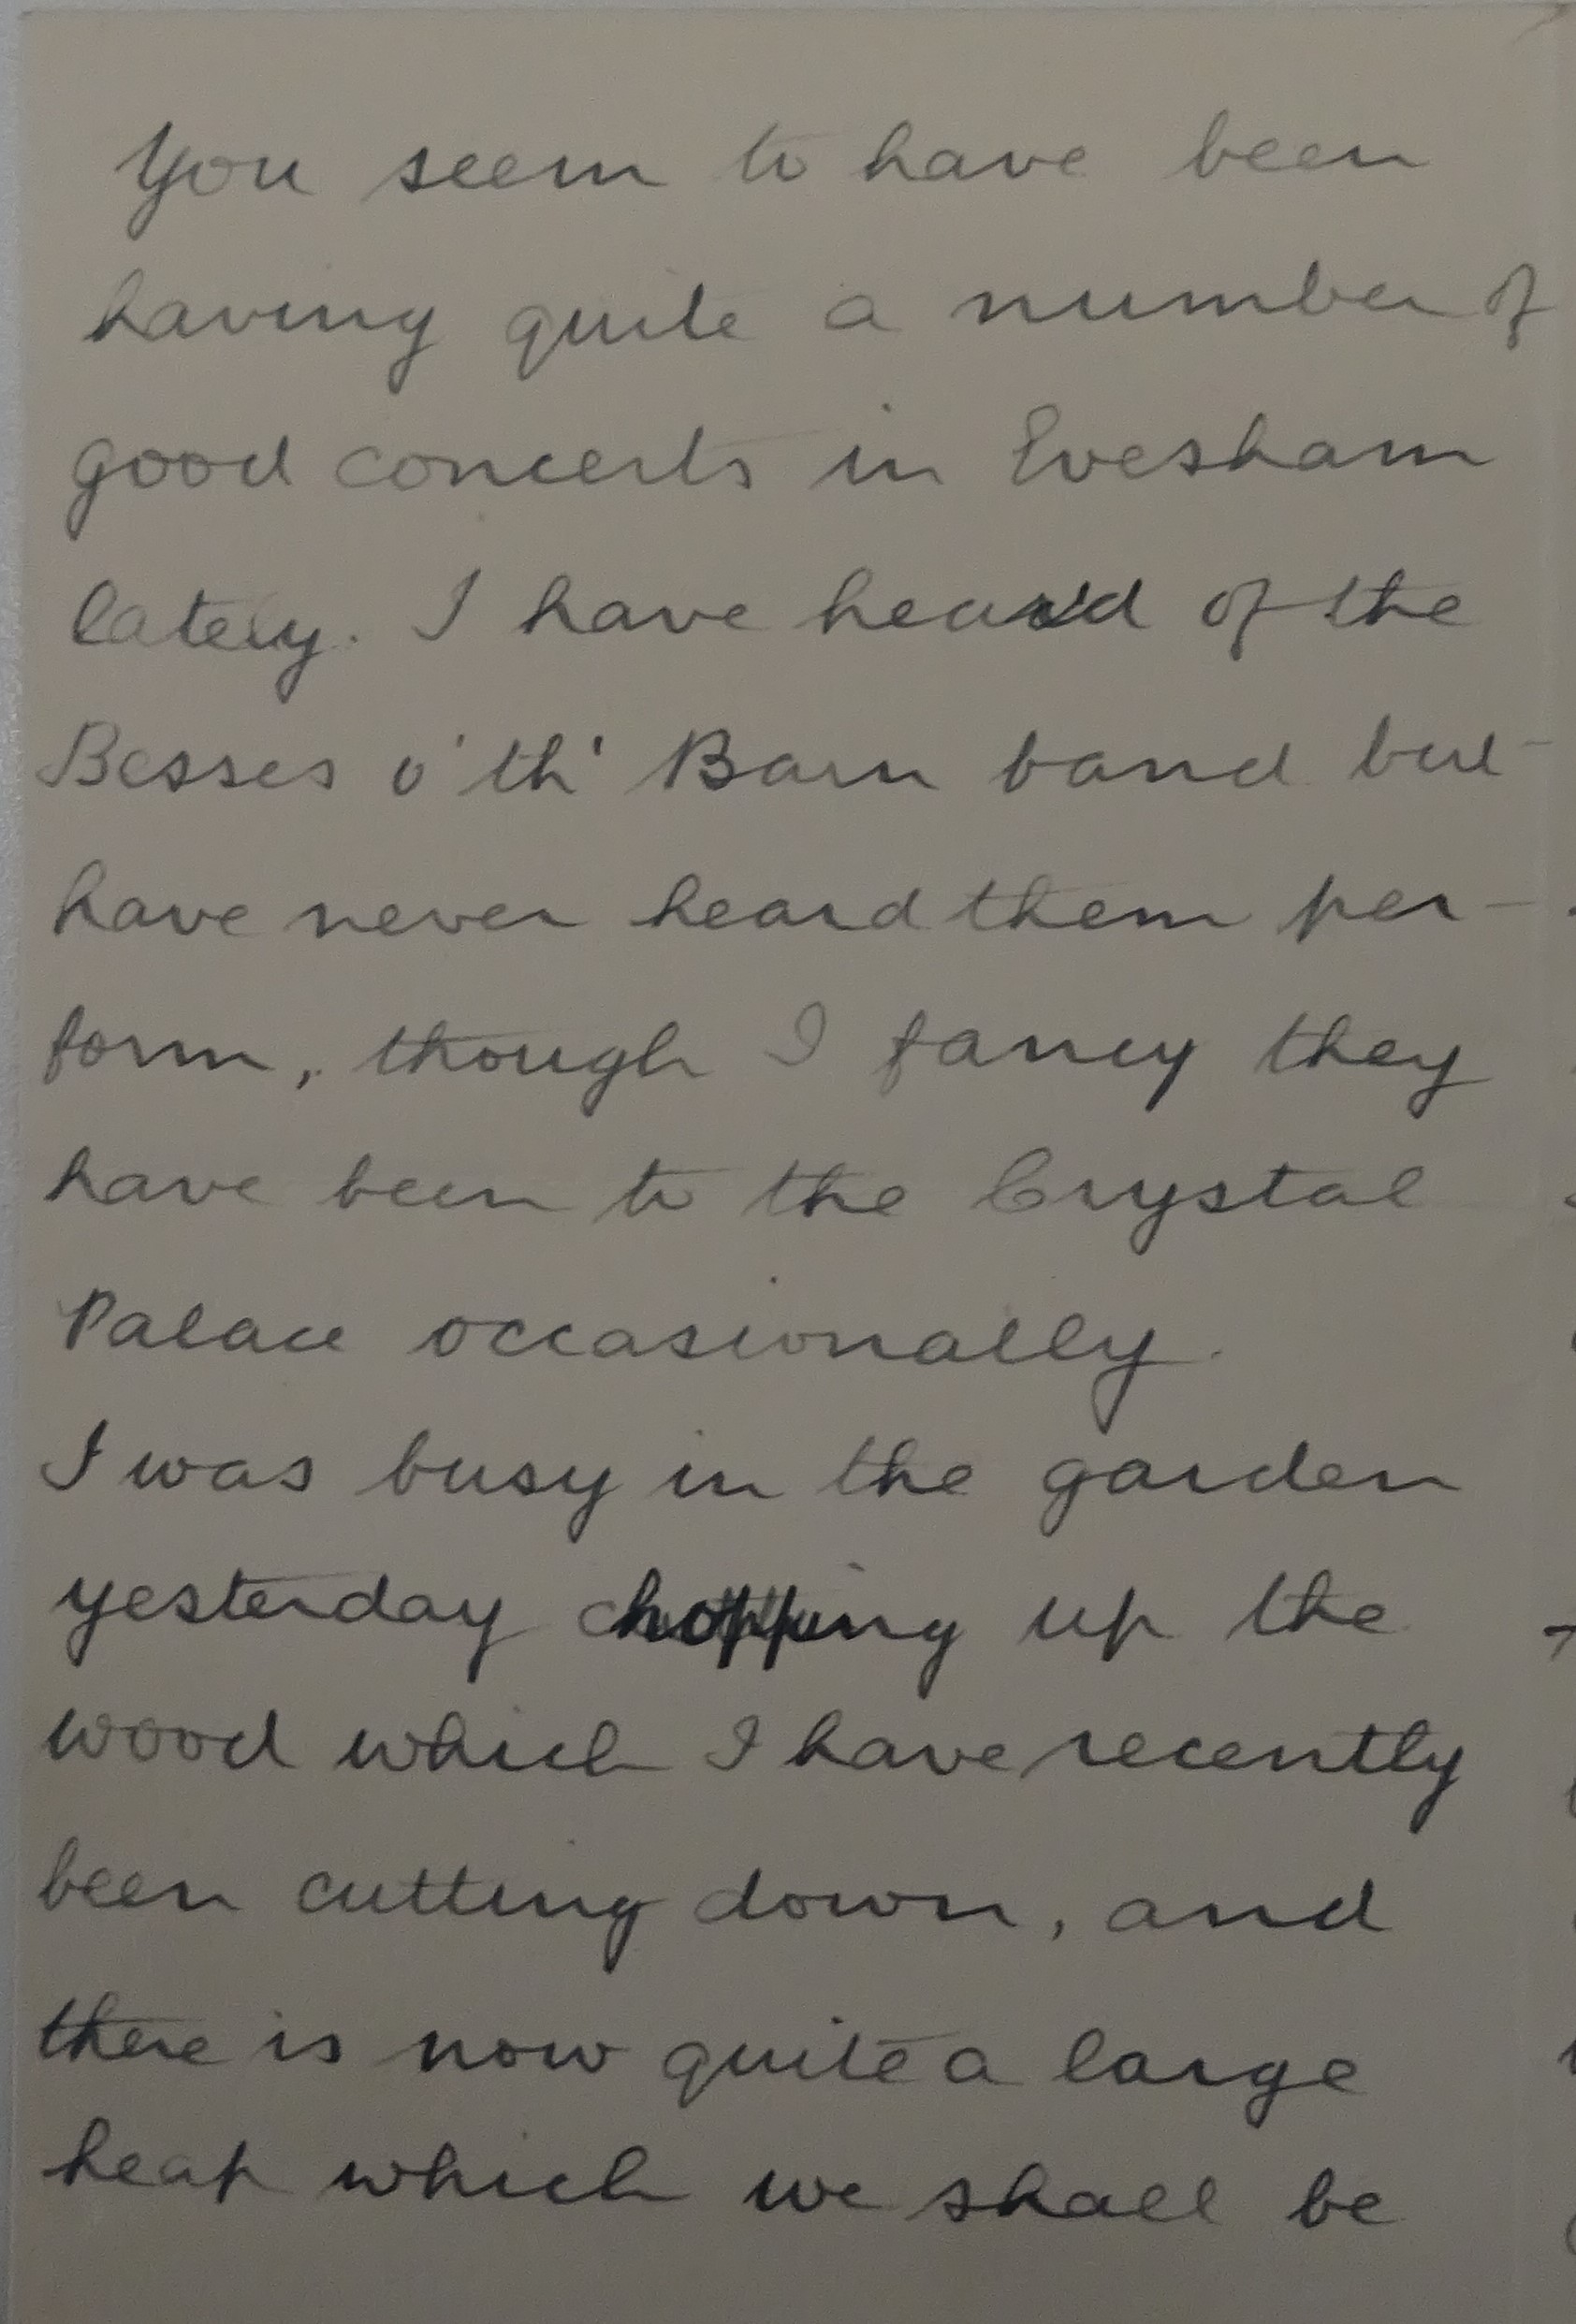 You seem to have been
having quite a number of
good concerts in Evesham
lately. I have heard of the
Besses o' th' Barn band but
have never heard them per-
form, though I fancy they
have been to the Crystal
Palace occasionally.
I was busy in the garden
yesterday chopping up the
wood which I have recently
been cutting down, and
there is now quite a large
heap which we shall be